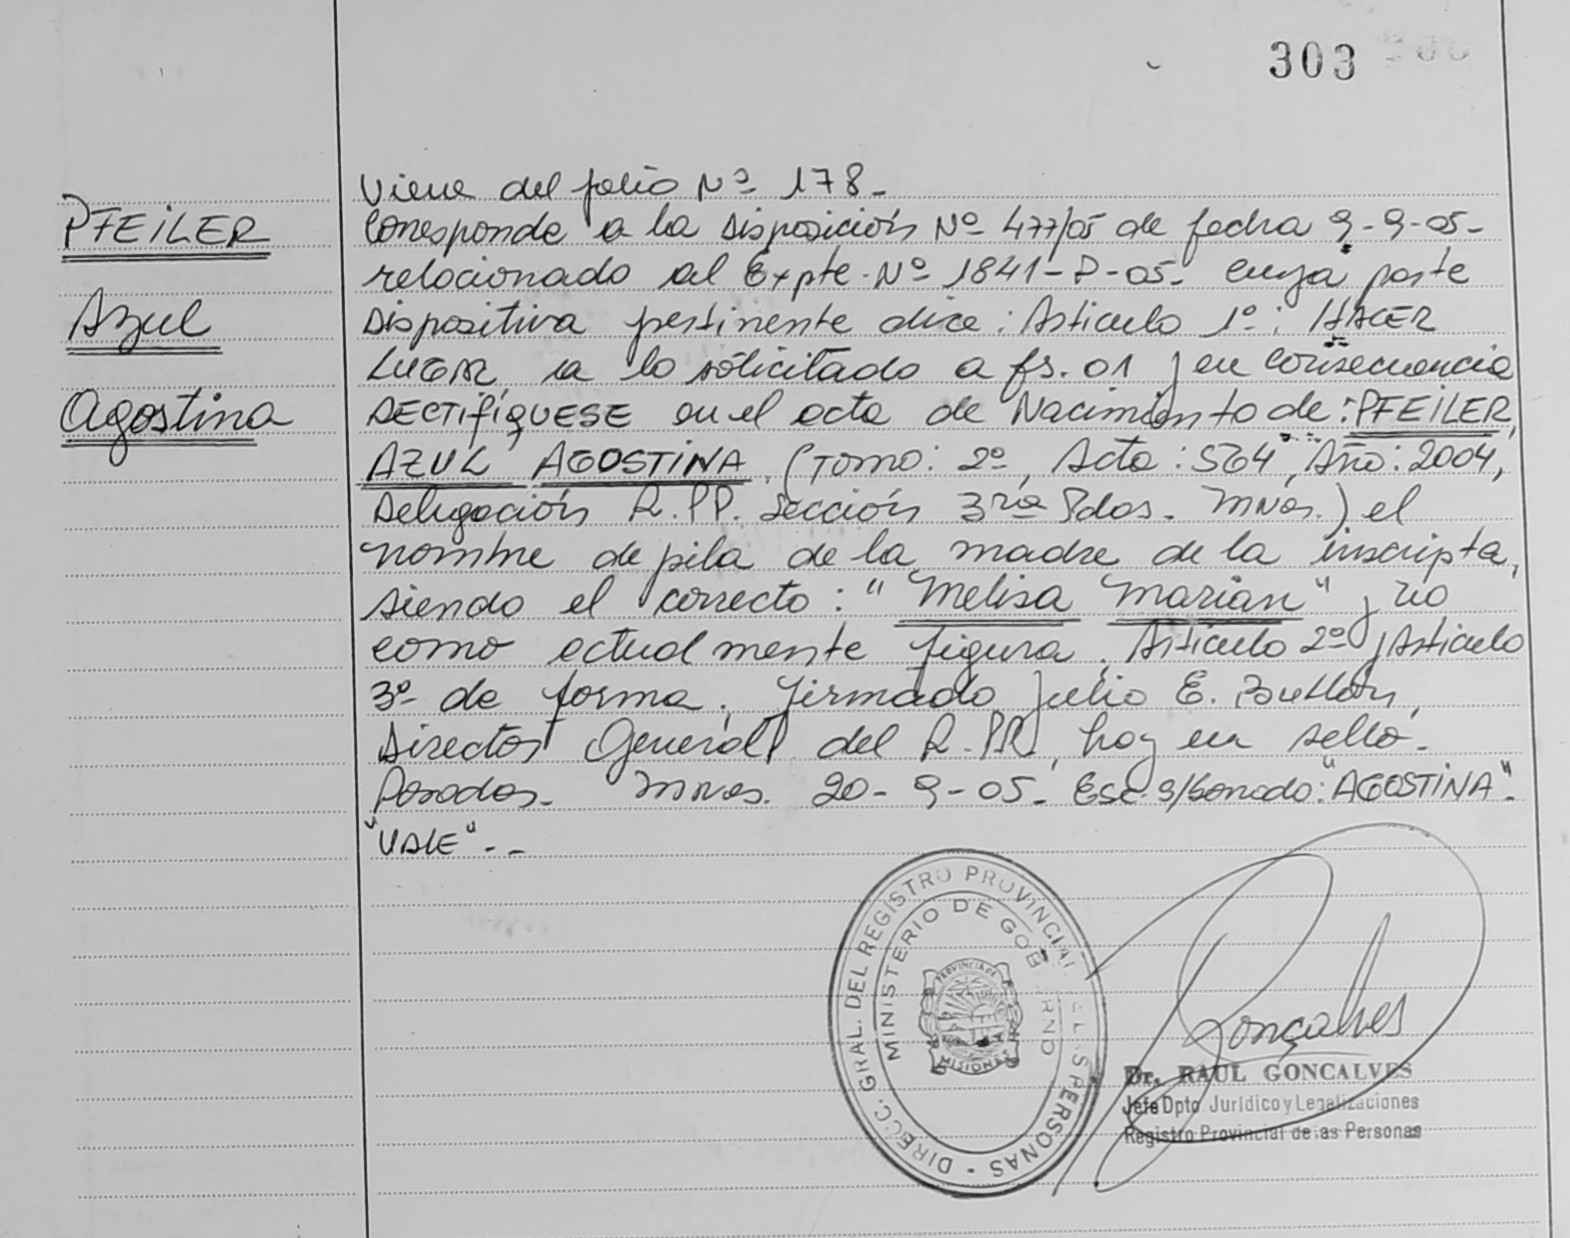 303
PFEILER
Azul
Agostina
Viene del folio Nº 178-
Corresponde a la Disposición Nº 477/05 de fecha 9-9-05-
relacionado al Expte. Nº 1841-P-05- cuya parte
Dispositiva pertinente dice: Articulo 1º: HACER
LUGAR a lo solicitado a fs. 01 y en consecuencia
RECTIFÍQUESE en el acta de Nacimiento de: PFEILER,
AZUL AGOSTINA, (Tomo: 2º, Acta: 564, Año: 2004,
Delegación R.PP. Sección 3ra Pdas. Mnes.) el
nombre de pila de la madre de la inscripta,
siendo el correcto: "Melisa Marian" y no
como actualmente figura. Articulo 2º y Articulo
3º de forma. Firmado Julio E.
Director General del R.PP. hay un sello.
Posadas. Mnes. 20-9-05- Esc. s/borrado: "AGOSTINA"-
"VALE"--
DIRECC. GRAL. DEL REGISTRO PROVINCIAL DE LAS PERSONAS -
MINISTERIO DE GOBIERNO
PROVINCIA DE
MISIONES
Goncalves
Dr. RAUL GONCALVES
Jefe Dpto Jurídico y Legalizaciones
Registro Provincial de as Personas